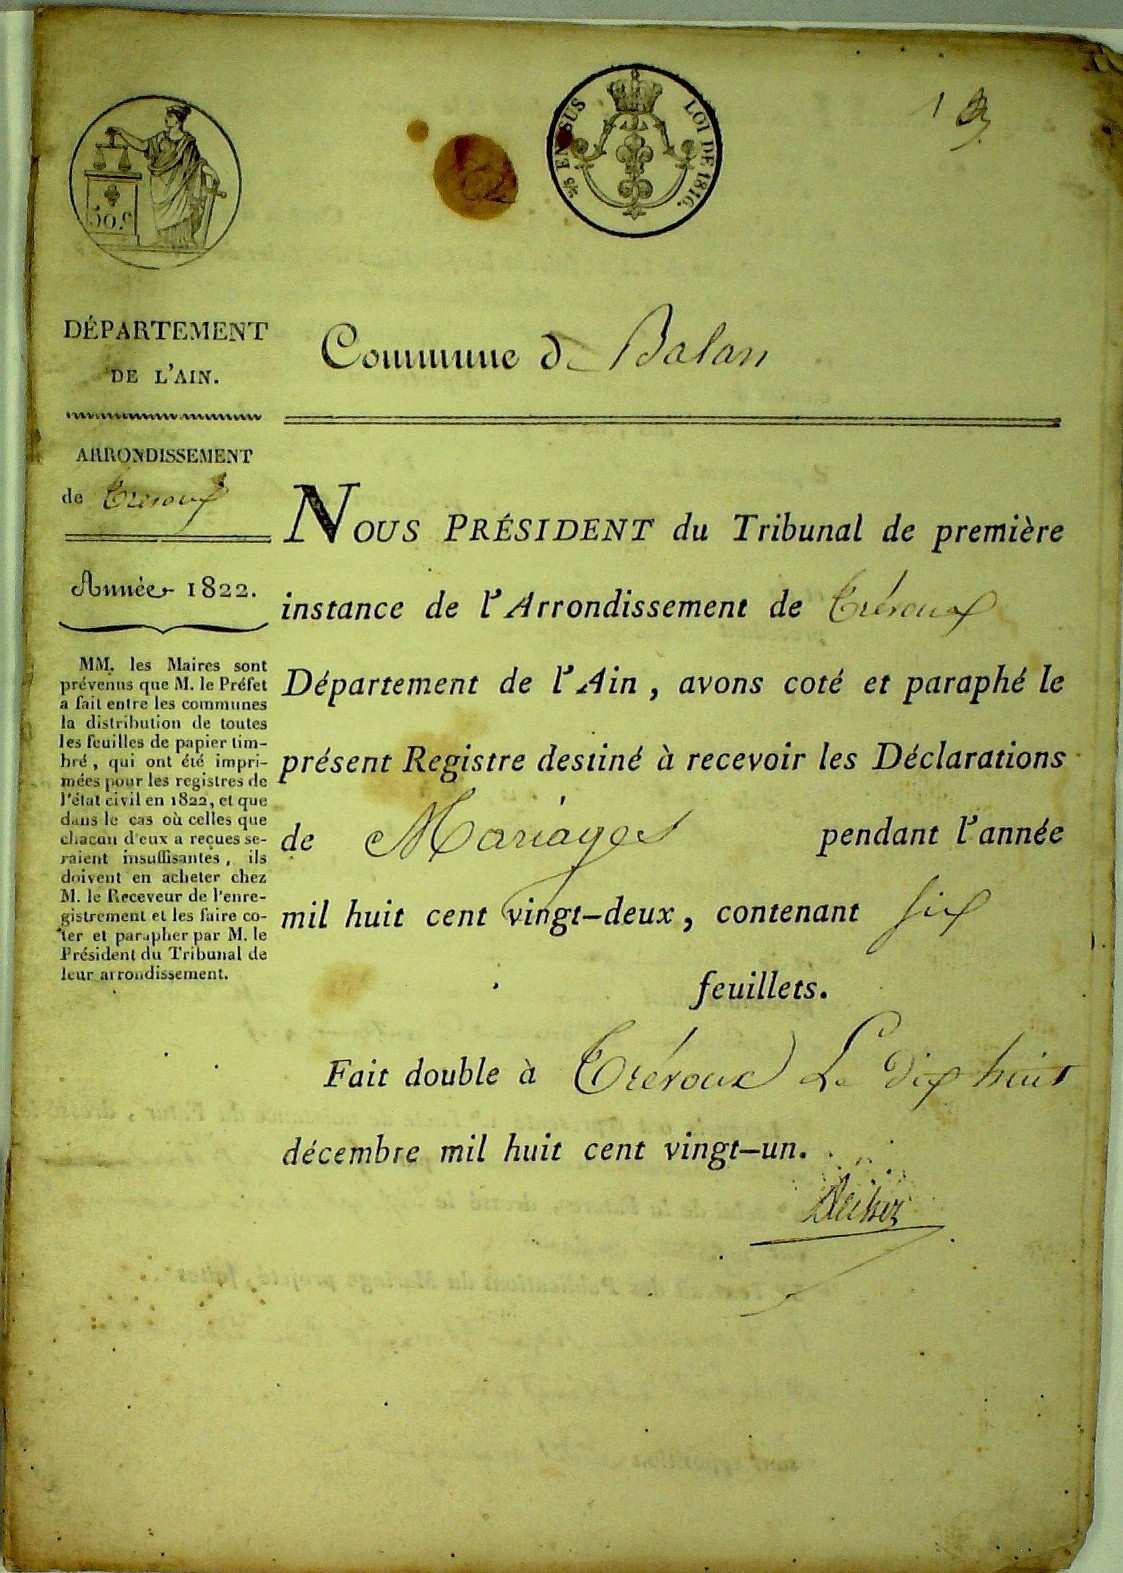 1
50 c
5/8 EN SUS LOI DE 1816.
DÉPARTEMENT
DE L'AIN.
ARRONDISSEMENT
de Trévoux
Année 1822.
MM. les Maires sont
prévenus que M. le Préfet
a fait entre les communes
la distribution de toutes
les feuilles de papier tim-
bré, qui ont été impri-
mées pour les registres de
l'état civil en 1822, et que
dans le cas où celles que
chacun d'eux a reçues se-
raient insuffisantes, ils
doivent en acheter chez
M. le Receveur de l'enre-
gistrement et les faire co-
ter et parapher par M. le
Président du Tribunal de
leur arrondissement.
Commune de Balan
NOUS PRÉSIDENT du Tribunal de première
instance de l'Arrondissement de Trévoux
Département de l'Ain, avons coté et paraphé le
présent Registre destiné à recevoir les Déclarations
de Mariages pendant l'année
mil huit cent vingt-deux, contenant six
feuillets.
Fait double à Trévoux Le dix huit
décembre mil huit cent vingt-un.